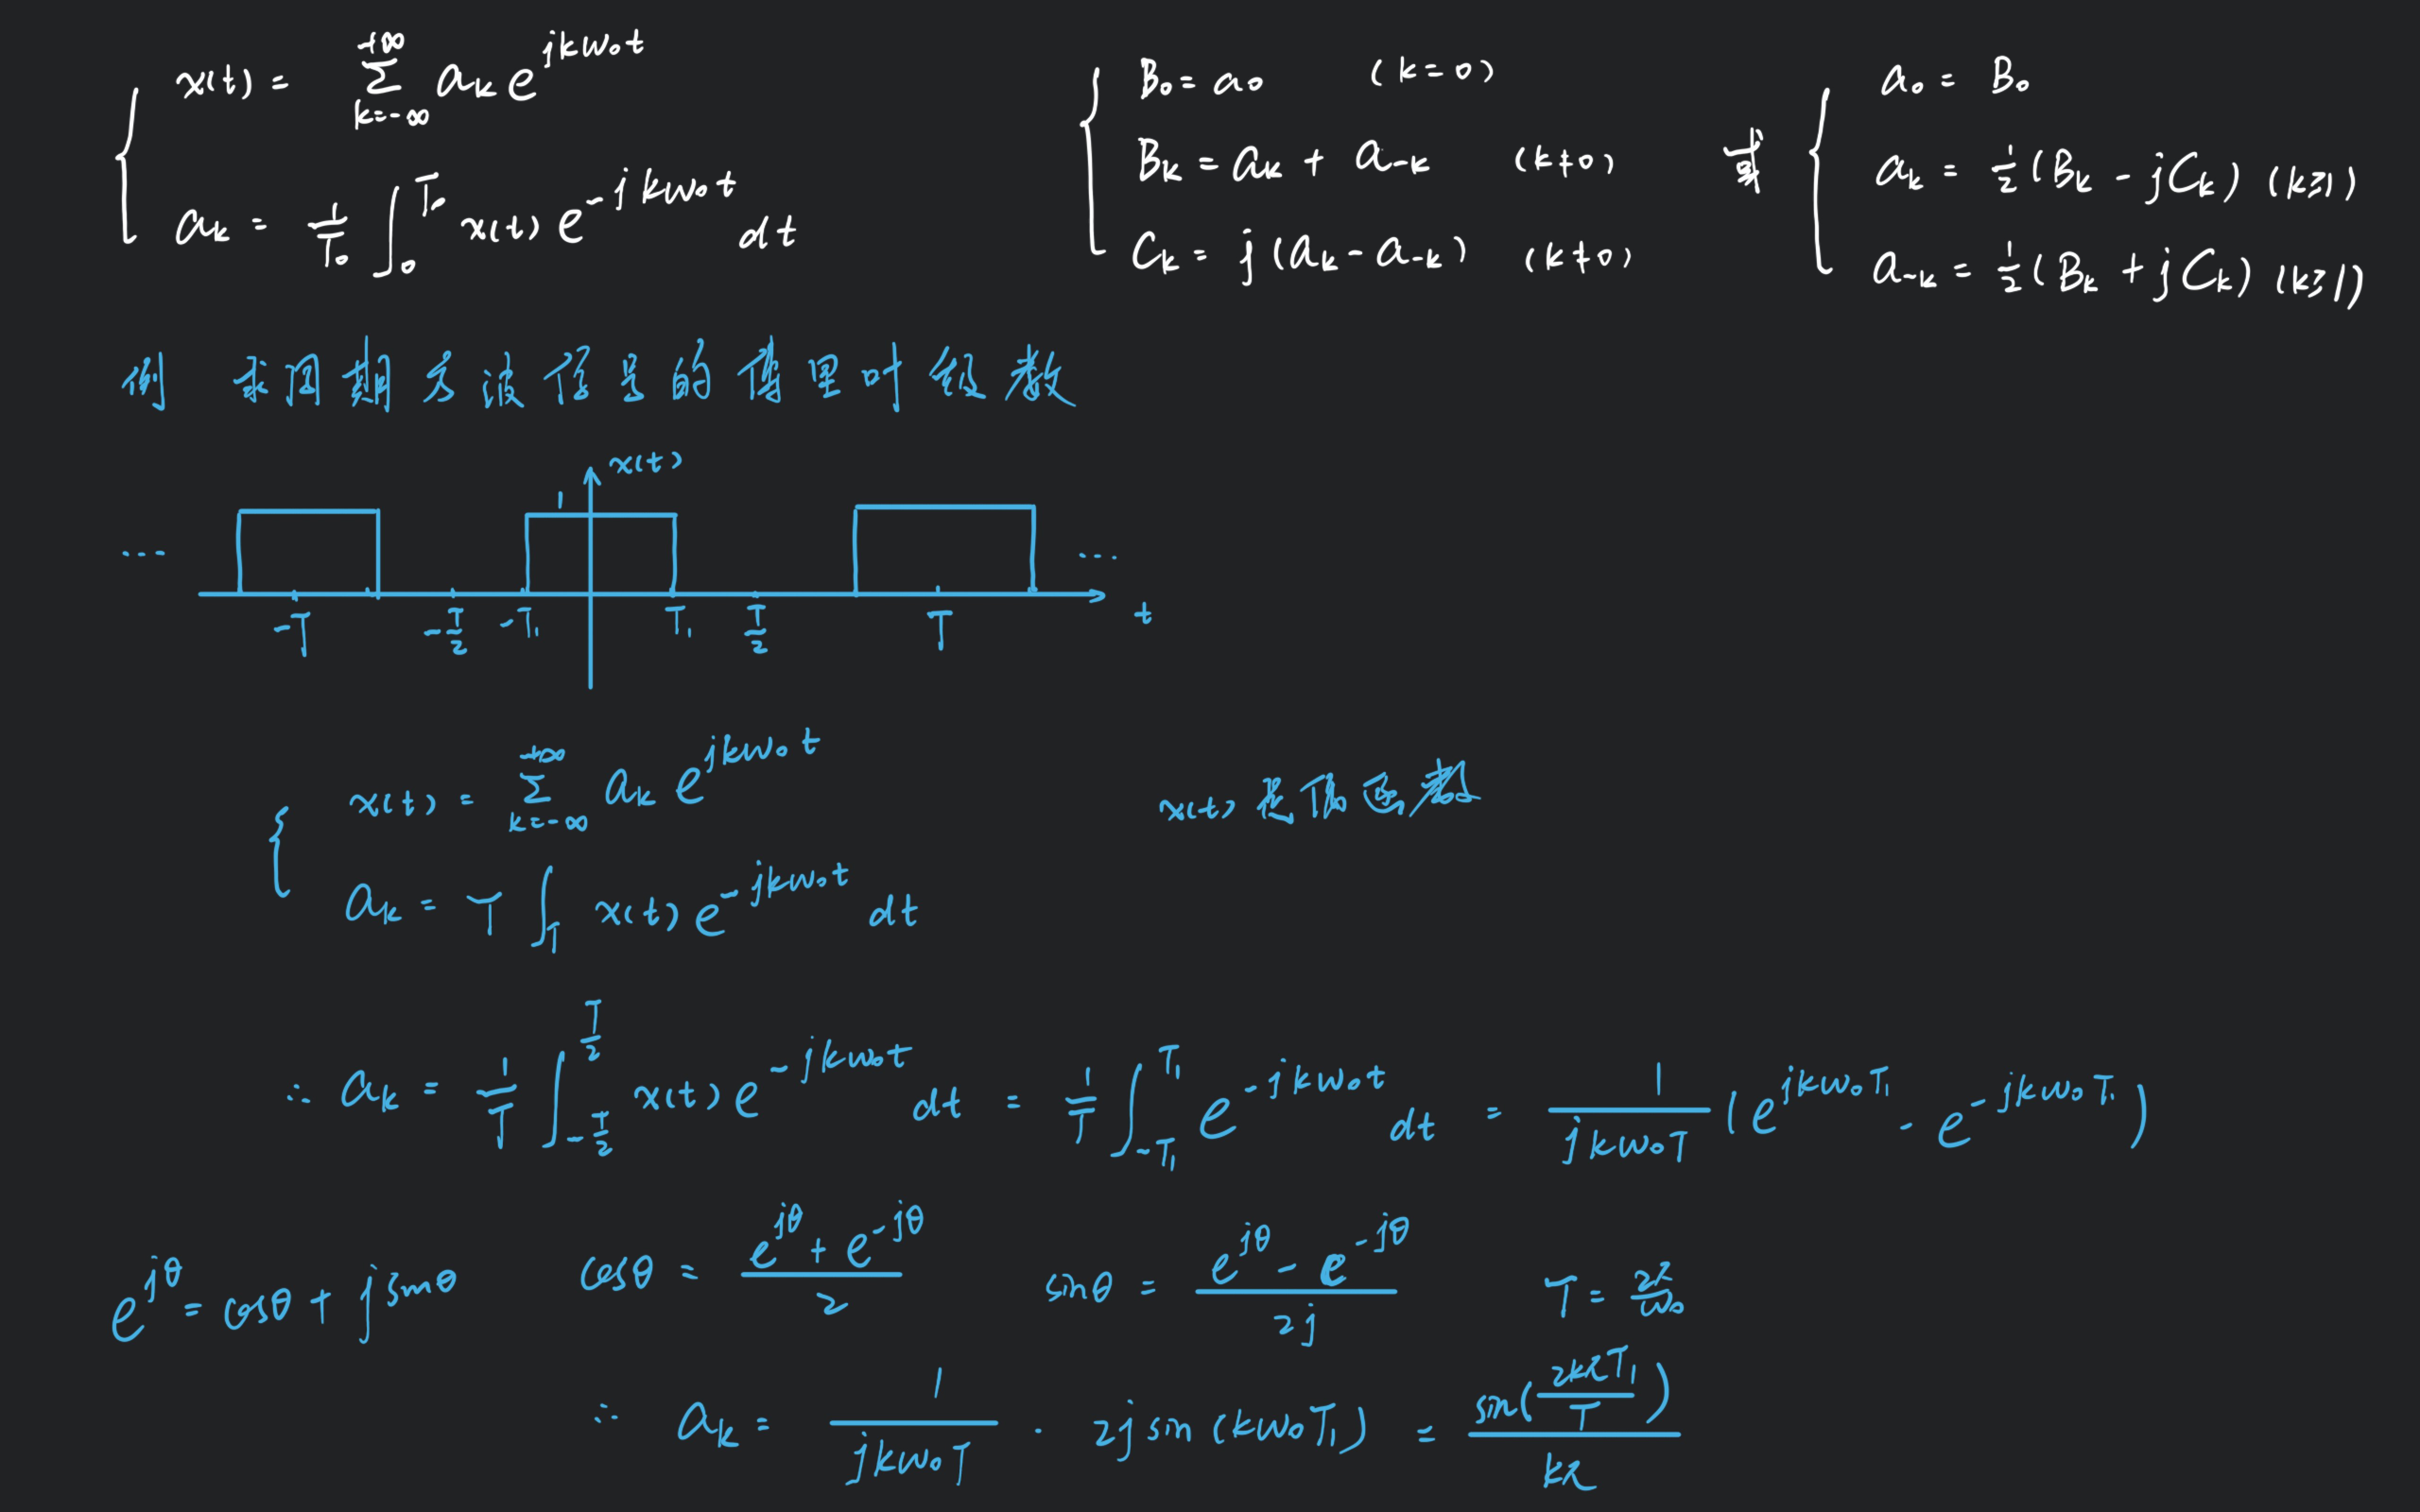 x(t) = ∑_{k=-∞}^{+∞} a_k e^{jkω₀t}
a_k = 1/T₀ ∫_0^{T₀} x(t) e^{-jkω₀t} dt
B₀ = a₀ (k=0)
B_k = a_k + a_{-k} (k≠0)
C_k = j(a_k - a_{-k}) (k≠0)
或
a₀ = B₀
a_k = 1/2 (B_k - jC_k) (k≥1)
a_{-k} = 1/2 (B_k + jC_k) (k≥1)
例 求周期方波信号的傅里叶级数
x(t)
1
... ...
-T -T/2 -T₁ T₁ T/2 T t
x(t) = ∑_{k=-∞}^{+∞} a_k e^{jkω₀t} x(t) 是偶函数
a_k = T ∫_T x(t) e^{-jkω₀t} dt
∴ a_k = 1/T ∫_{-T/2}^{T/2} x(t) e^{-jkω₀t} dt = 1/T ∫_{-T₁}^{T₁} e^{-jkω₀t} dt = 1/(jkω₀T) (e^{jkω₀T₁} - e^{-jkω₀T₁})
e^{jθ} = cosθ + j sinθ cosθ = (e^{jθ} + e^{-jθ})/2 sinθ = (e^{jθ} - e^{-jθ})/2j T = 2π/ω₀
∴ a_k = 1/(jkω₀T) · 2j sin(kω₀T₁) = sin(2kπT₁/T)/kπ